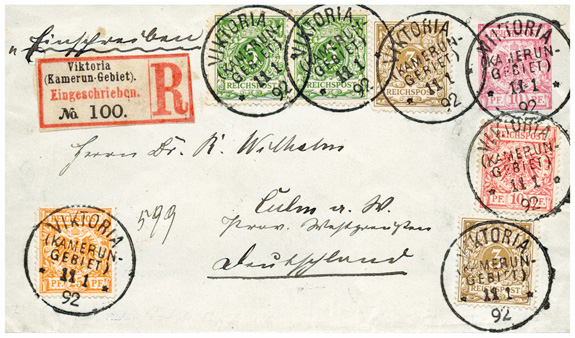 "Einschreiben
Viktoria
(Kamerun-Gebiet).
Eingeschrieben.
No 100.
R
VIKTORIA
(KAMERUN-
GEBIET)
11 1
92
5
REICHSPOST
VIKTORIA
(KAMERUN-
GEBIET)
11 1
92
5
REICHSPOST
VIKTORIA
(KAMERUN-
GEBIET)
11 1
92
REICHSPOST
VIKTORIA
(KAMERUN-
GEBIET)
11 1
92
PF 10 PF
Herrn Dr. K. Wilhelm
VIKTORIA
(KAMERUN-
GEBIET)
11 1
92
REICHSPOST
PF 10 PF
599
Culm a. W.
Prov. Westpreußen
Deutschland
VIKTORIA
(KAMERUN-
GEBIET)
11 1
92
PF 25 PF
VIKTORIA
(KAMERUN-
GEBIET)
11 1
92
3
REICHSPOST